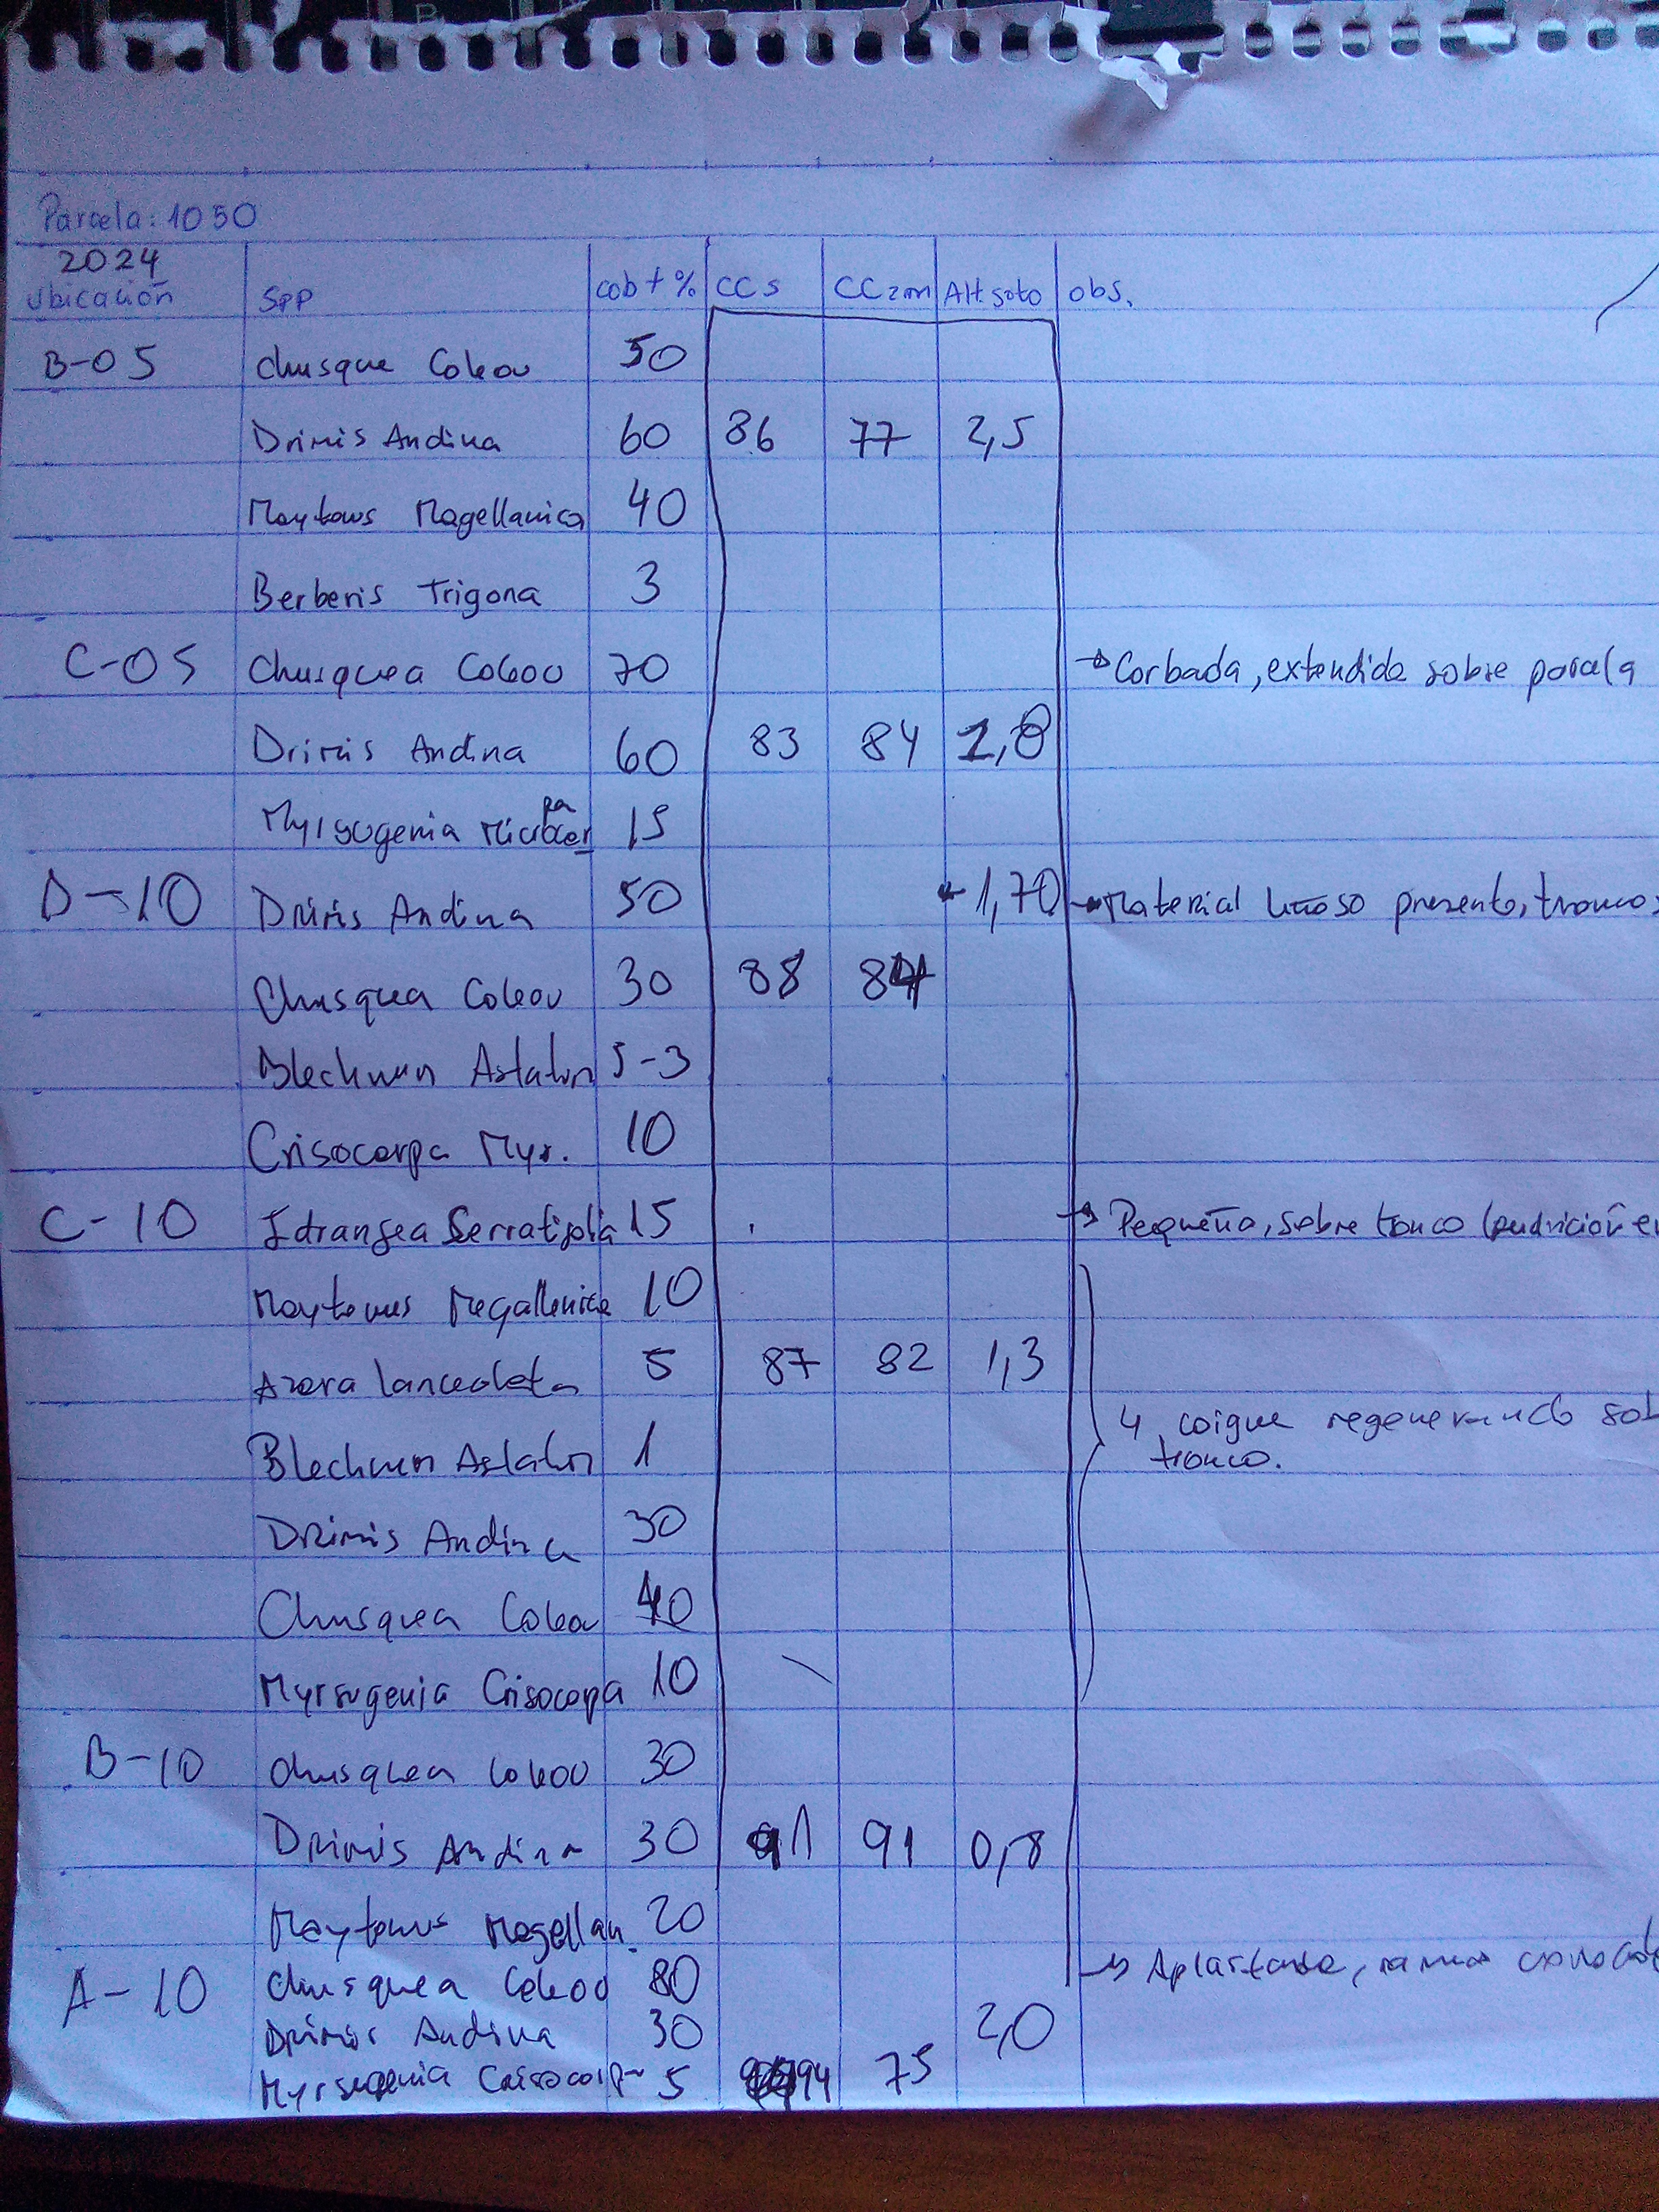 Parcela: 1050
2024
Ubicación SPP cobt % CCs CC2m Alt.soto obs.
B-05 chusque Coleou 50
Drimis Andina 60 86 77 2,5
Maytenus Magellanica 40
Berberis Trigona 3
C-05 Chusquea Coleou 70 → Corbada, extendida sobre parcela
Drimis Andina 60 83 84 1,8
Myrsogenia Microcar
pa 15
D-10 Drimis Andina 50 1,70 → Material leñoso presente, troncos
Chusquea Coleou 30 88 84
Blechnun Astatun 5-3
Crisocarpa Myr. 10
C-10 Idrangea Serratifolia 15 → Pequeña, sobre tronco (pudrición en
Maytenus Magallenica 10
Azara lanceolata 5 87 82 1,3
4 coigue regenerando sob
tronco.
Blechnun Astatun 1
Drimis Andina 30
Chusquea Coleou 40
Myrsugenia Crisocorpa 10
B-10 chusquea Coleou 30
Drimis Andina 30 91 91 0,8
Maytenus Magellan. 20
A-10 chusquea Coleou 80 → Aplastande, ramas
Drimis Andina 30 2,0
Myrsugenia Crisocorpa 5 94 75